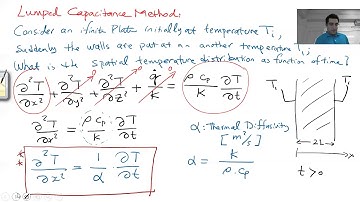 Lumped Capacitance Method:
Consider an infinite Plate initially at temperature Ti,
Suddenly the walls are put at an another temperature T1;
What is the spatial temperature distribution as function of time?
∂²T/∂x² + ∂²T/∂y² + ∂²T/∂z² + q̇/k = ρ cp/k ∂T/∂t
∂²T/∂x² = ρ cp/k · ∂T/∂t
α: Thermal Diffusivity
[m²/s]
∂²T/∂x² = 1/α · ∂T/∂t
α = k/ρ.cp
2L
x
t>0